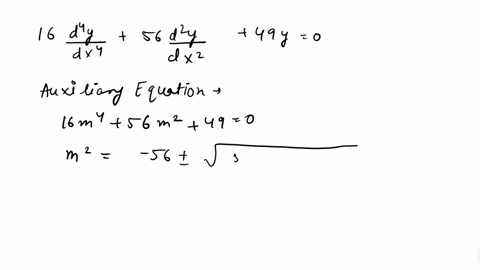 16 d⁴y/dx⁴ + 56 d²y/dx² + 49y = 0
Auxiliary Equation →
16m⁴ + 56m² + 49 = 0
m² = -56 ± √